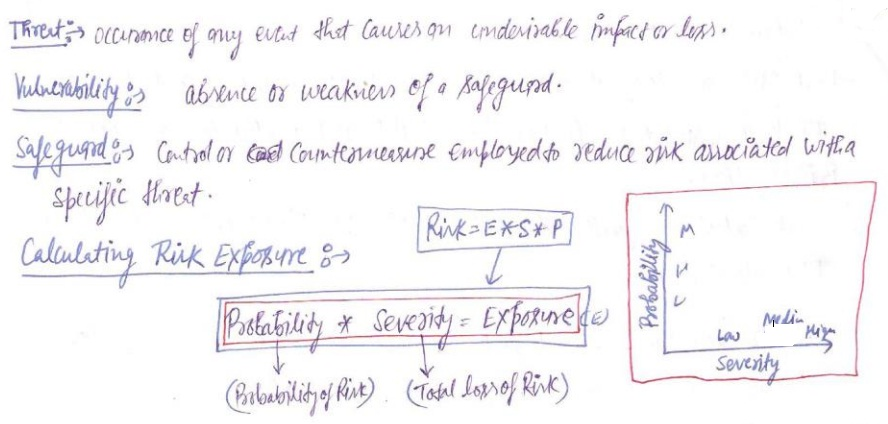 Threat :→ occurance of any event that causes an undesirable impact or loss.
Vulnerability :→ absence or weakness of a safeguard.
Safeguard :→ Control or Countermeasure employed to reduce risk associated with a
specific threat.
Calculating Risk Exposure :→
Risk = E * S * P
Probability * Severity = Exposure (E)
(Probability of Risk) (Total loss of Risk)
Probability
M
L
Low Medium High
Severity